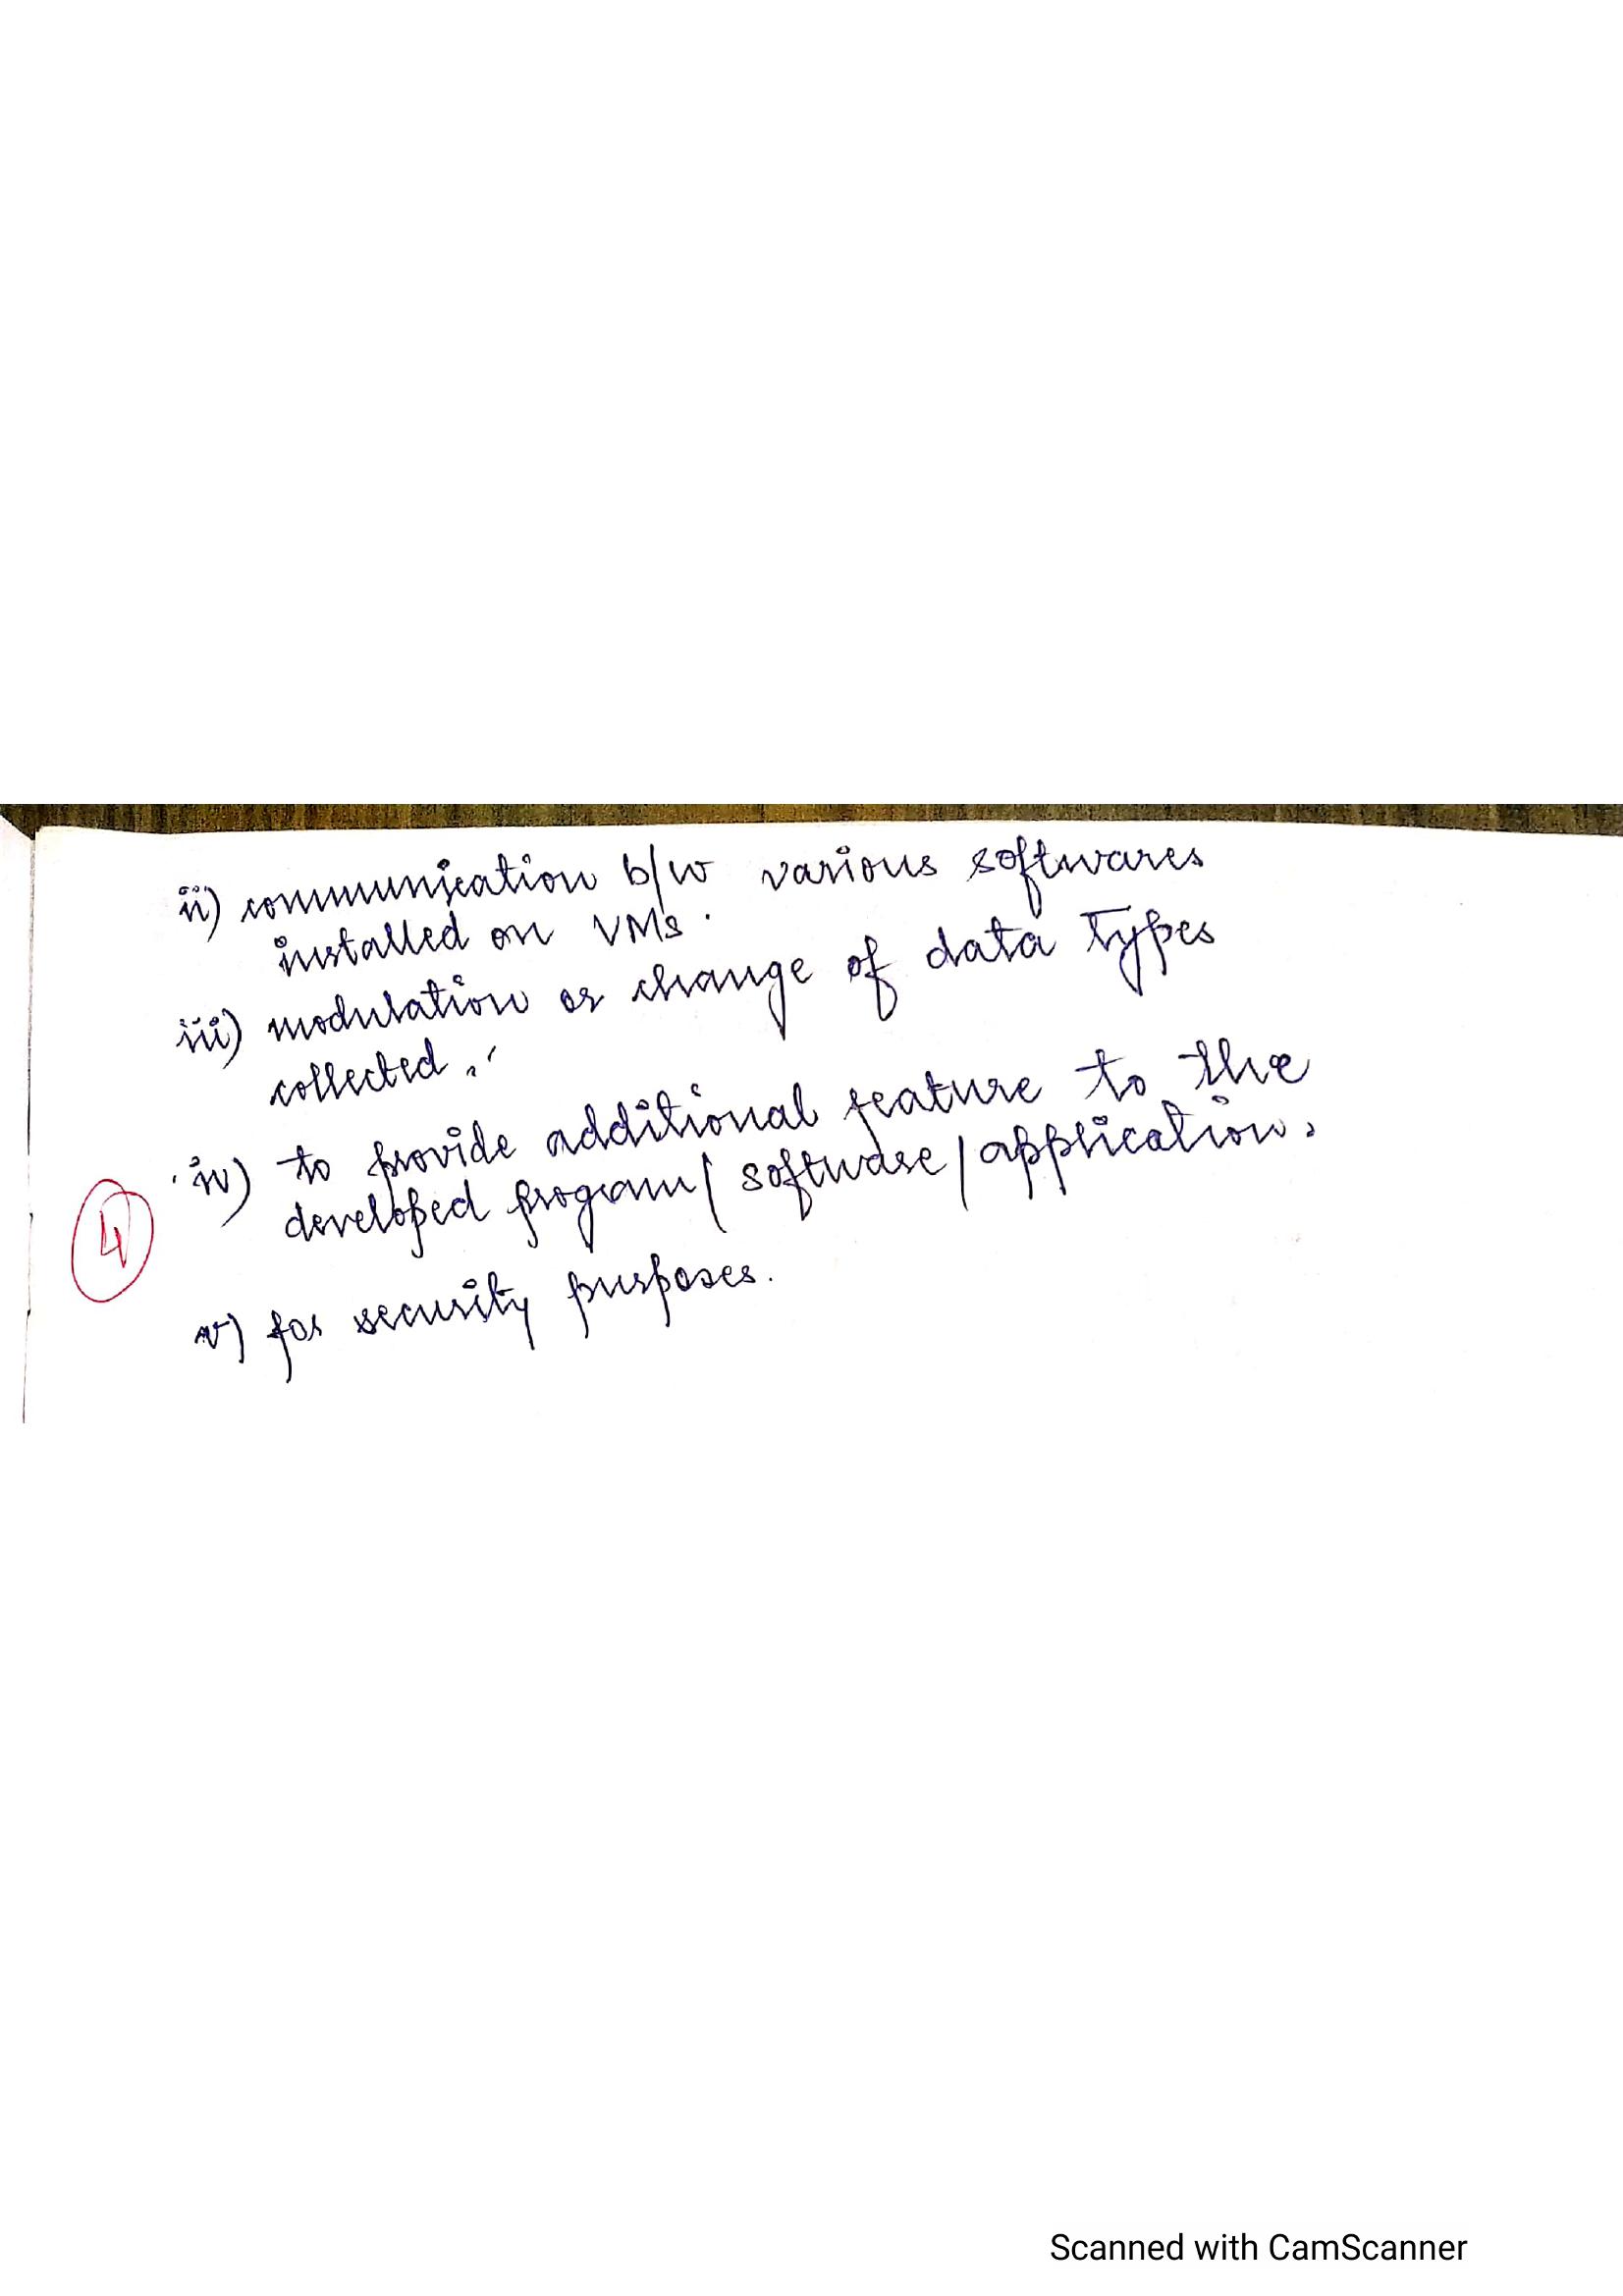 ii) communication b/w various softwares
installed on VMs.
iii) modulation or change of data types
collected.
iv) to provide additional feature to the
developed program/ software/ application.
4
v) for security purposes.
Scanned with CamScanner